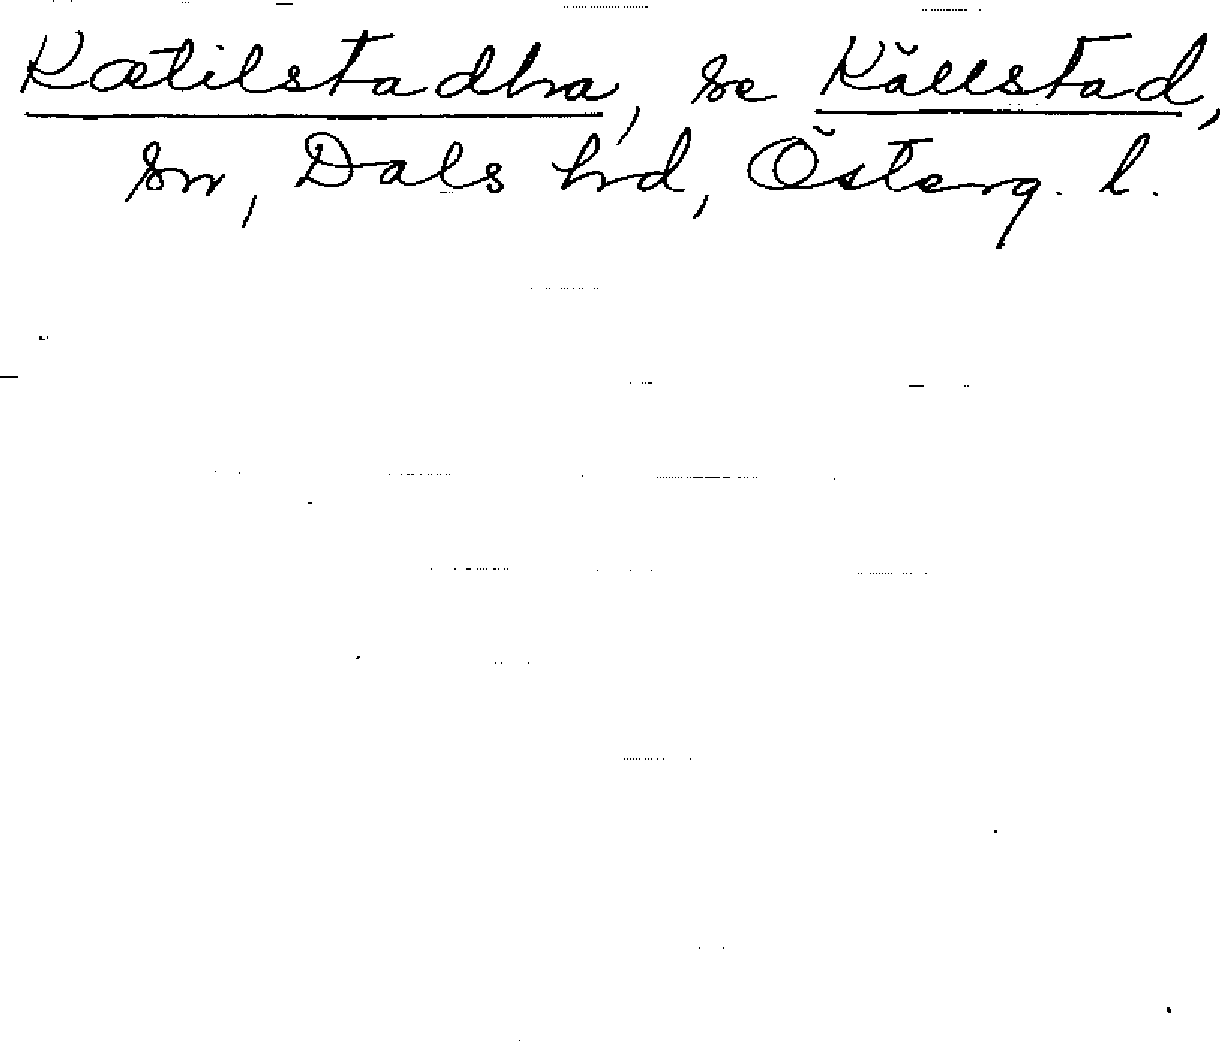 Kætilstadha, se Källstad,
sn, Dals hd, Österg. l.